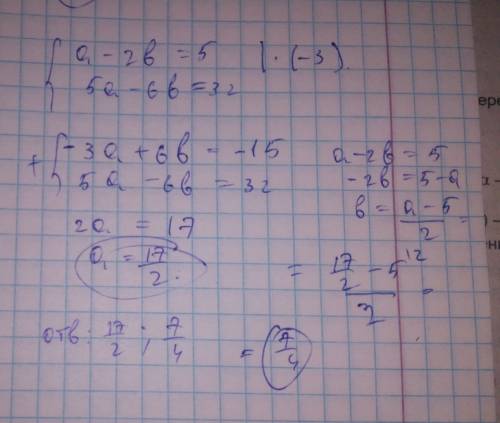 a - 2b = 5 | · (-3).
5a - 6b = 32
+ -3a + 6b = -15
5a - 6b = 32
2a = 17
a = 17/2.
a - 2b = 5
-2b = 5 - a
b = (a - 5)/2 =
= (17/2 - 5)/2 =
= 7/4
отв: 17/2 ; 7/4